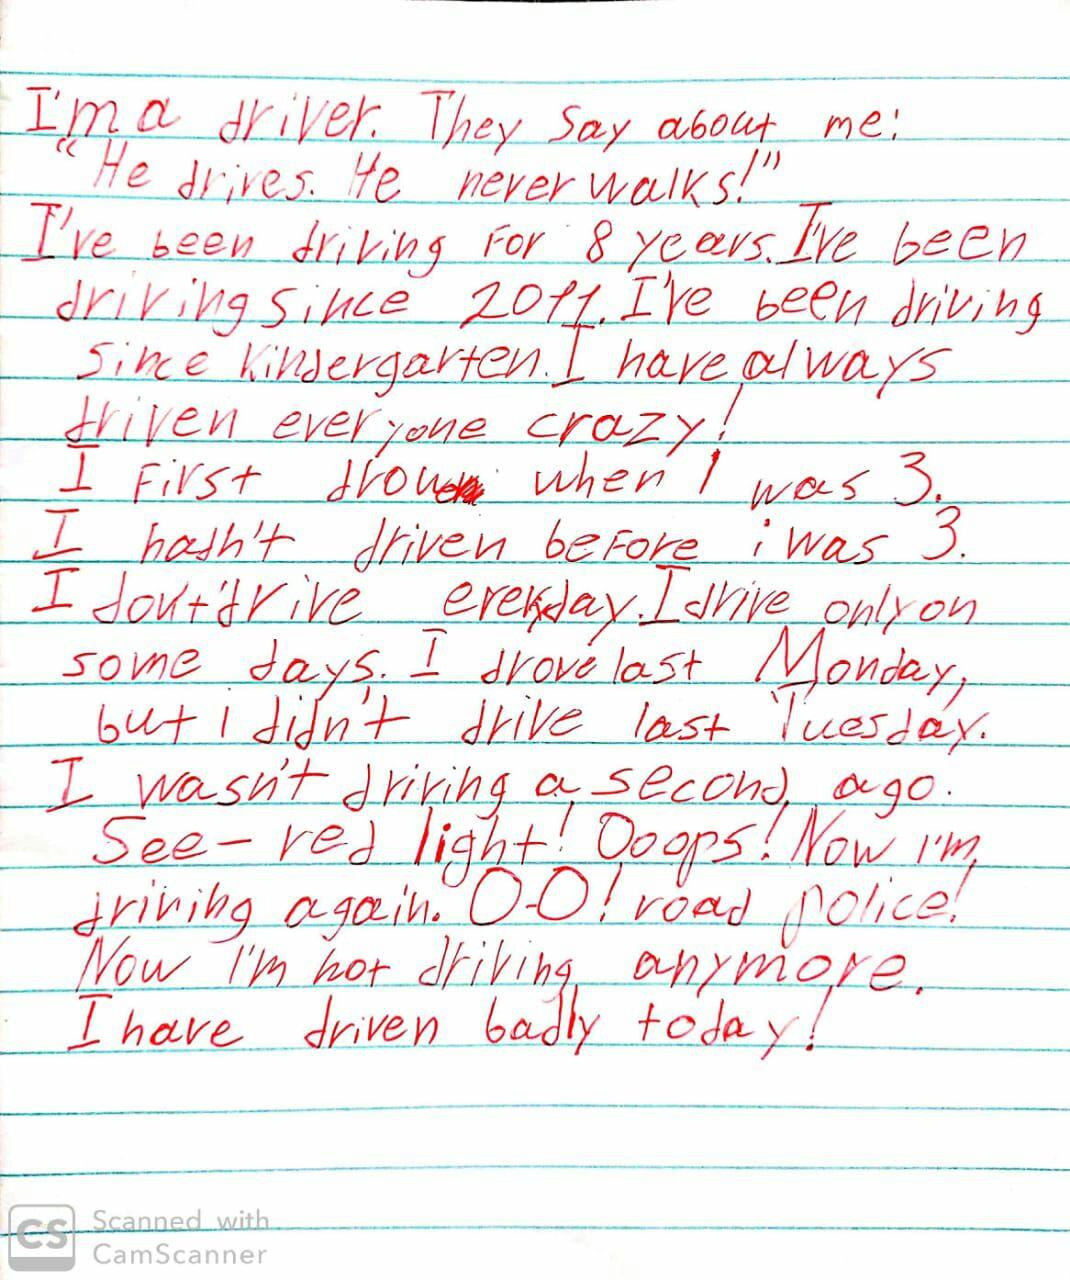 I'm a driver. They say about me:
"He drives. He never walks!"
I've been driving for 8 years. I've been
driving since 2011. I've been driving
since kindergarten. I have always
driven everyone crazy!
I first drow when I was 3.
I hadn't driven before i was 3.
I don't drive everyday. I drive only on
some days. I drove last Monday,
but i didn't drive last Tuesday.
I wasn't driving a second ago.
See - red light! Ooops! Now I'm
driving again. O-O! road police!
Now I'm not driving anymore.
I have driven badly today!
CS Scanned with
CamScanner